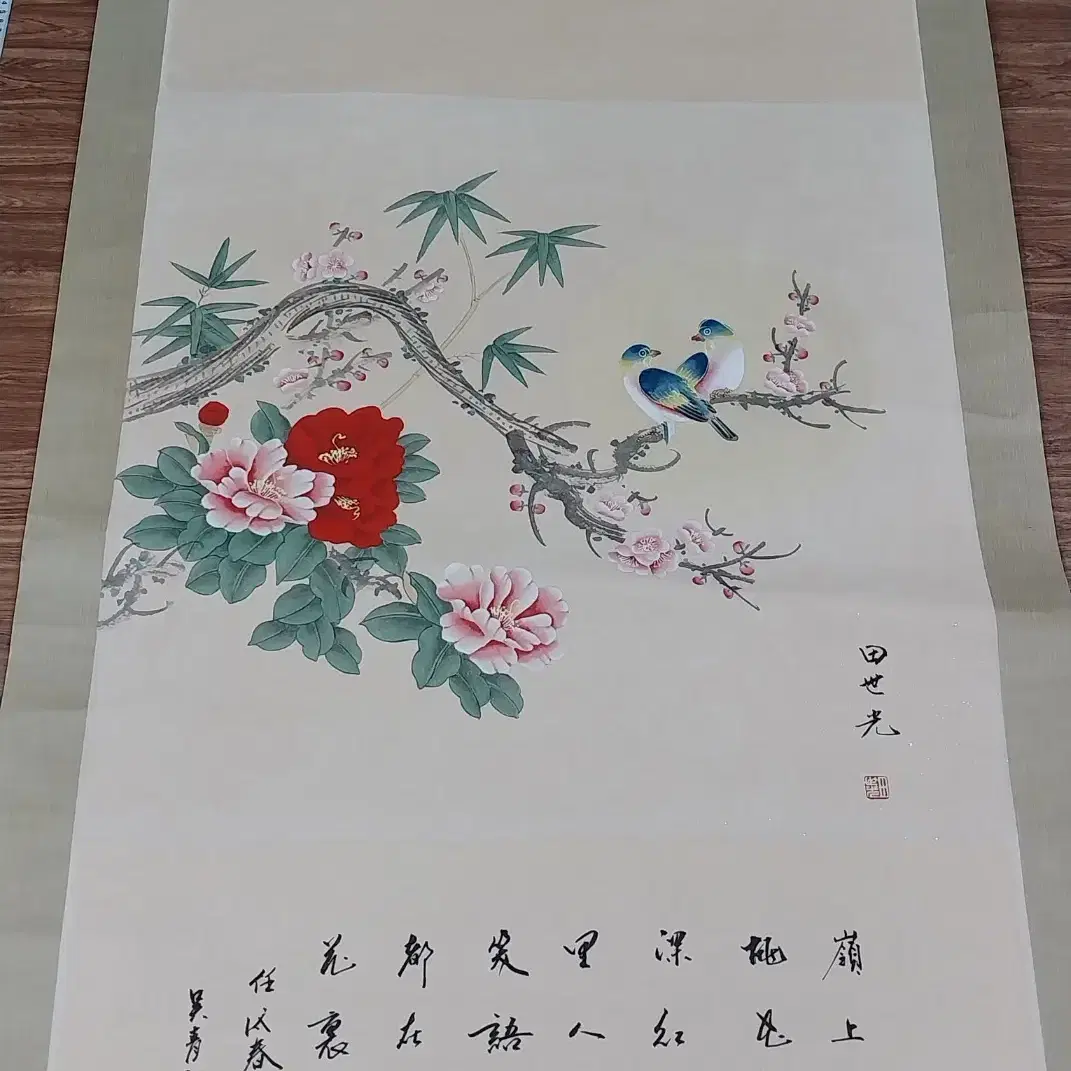 田世光
嶺上
花
深紅
里人
笑語
都在
花裏
春
吴青